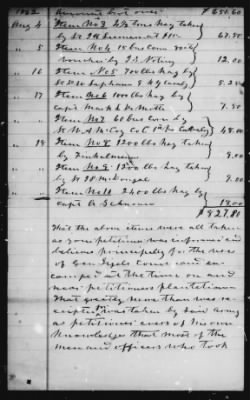 1862 Amount brot over $651.60
Aug 4 Item No 3 4½ tons hay taken
by 67.50
" 5 Item No 4 15 bus corn
voucher by 12.00
" 16 Item No 5 700 lbs hay by
5.25
" 17 Item No 6 1000 lbs hay by
Capt Mark L De Motte 7.50
Item No 7 60 bus corn by
McCoy Co C 1st 48.00
" 18 Item No 8 1200 lbs hay taken
by 9.00
Item No 9 1200 lbs hay taken
by 9.00
Item No 11 2400 lbs hay by
Capt 18.00
$827.81
That the above items were all taken
as your petitioner was informed and
believes principally for the use
of Genl Corps and
camped at the time on and
near petitioners plantation
That greatly more than was
was taken by said army
as petitioner avers of his own
knowledge that most of the
men and officers who took